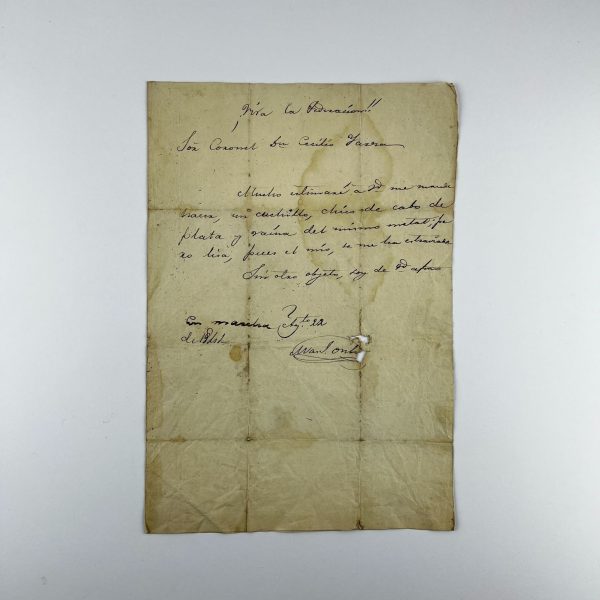 ¡Viva la Federacion!!
Sor Coronel Dn Cecilio
Mucho estimaré a Vd me mande
hacer, un cuchillo, chico de cabo de
plata y vaina del mismo metal, pe
ro lisa, pues el mio, se me ha estraviado
Sin otro objeto, soy de Vd afmo
En marcha Agto 22
de